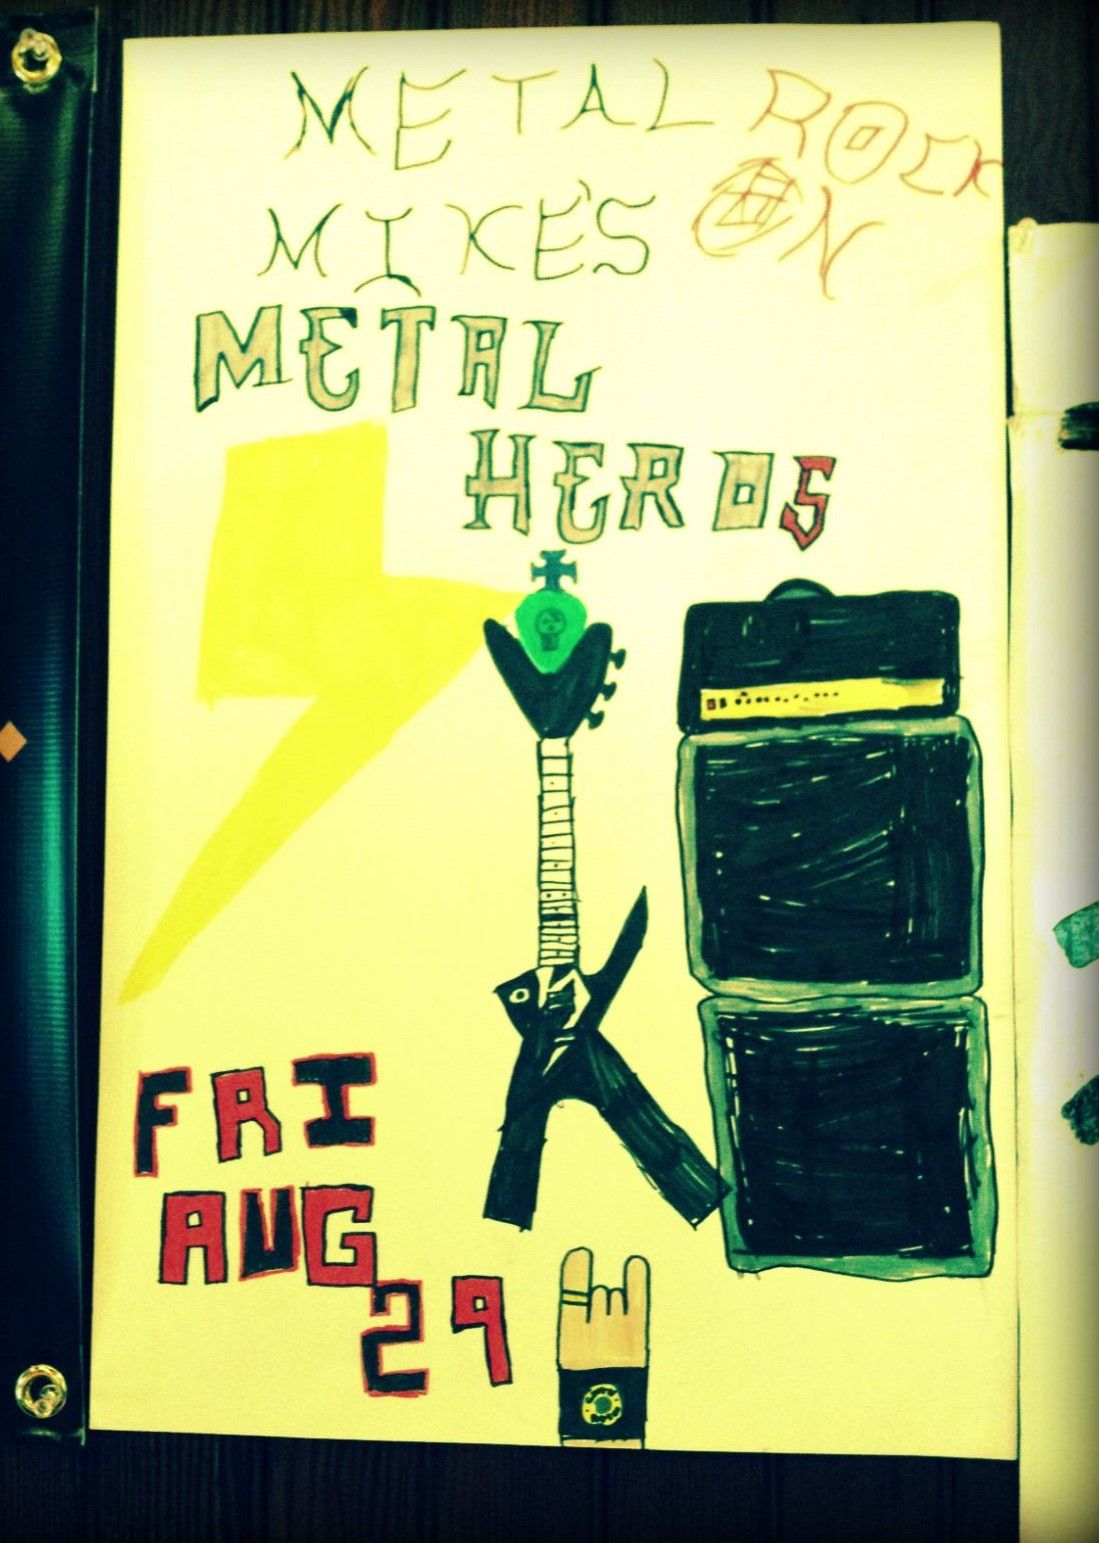 METAL ROCK
MIKE'S ON
METAL
HEROS
FRI
AUG
29